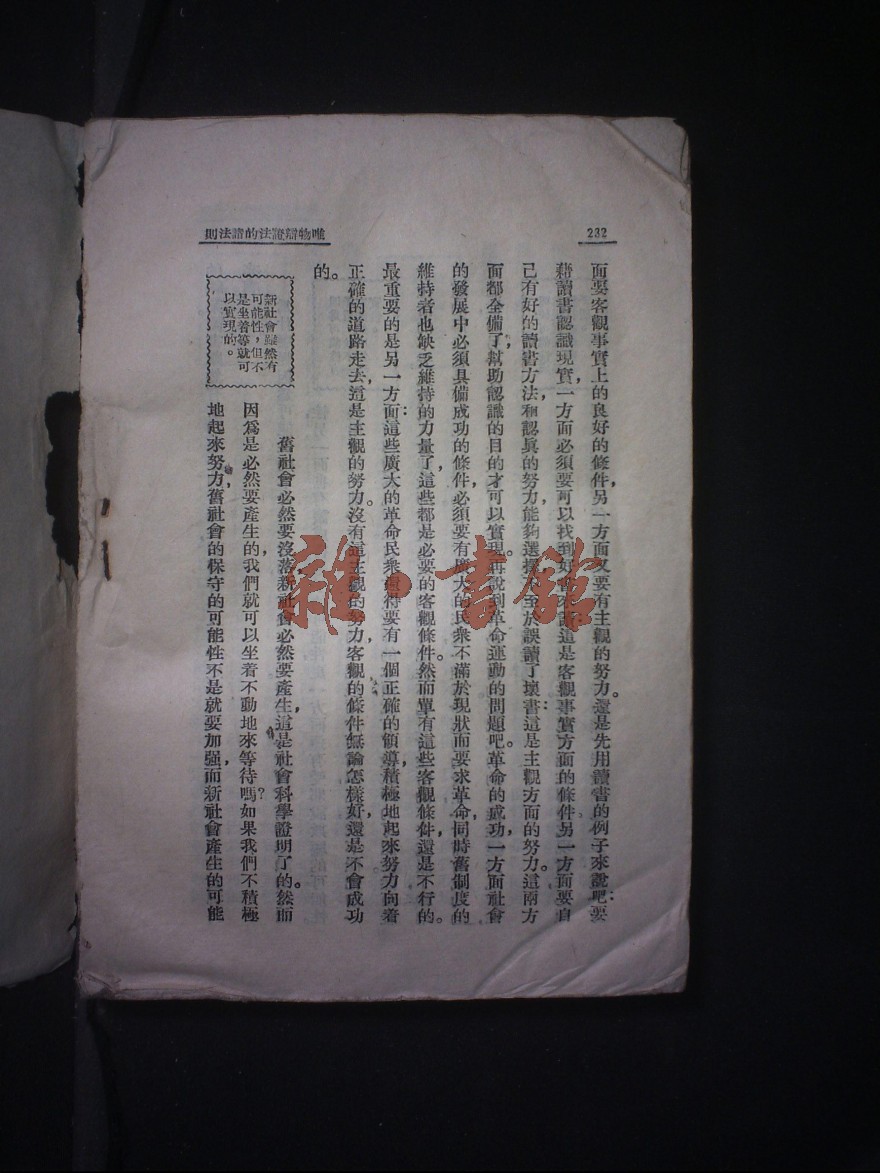 232
唯物辯證法的諸法則
面要客觀事實上的良好的條件，另一方面又要有主觀的努力。還是先用讀書的例子來說吧：要
藉讀書認識現實，一方面必須要可以找到好書來讀這是客觀事實方面的條件。另一方面要自
己有好的讀書方法，和認眞的努力，能夠選擇不至於誤讀了壞書：這是主觀方面的努力。這兩方
面都全備了，幫助認識的目的才可以實現。再說到革命運動的問題吧。革命的成功，一方面社會
的發展中必須具備成功的條件，必須要有廣大的民衆不滿於現狀而要求革命，同時舊制度的
維持者也缺乏維持的力量了，這些都是必要的客觀條件。然而單有這些客觀條件，還是不行的。
最重要的是另一方面：這些廣大的革命民衆還得要有一個正確的領導，積極地起來努力向着
正確的道路走去，這是主觀的努力。沒有這主觀的努力，客觀的條件無論怎樣好，還是不會成功
的。
新社會雖然有
可能性，但不
是坐着等就可
以實現的。
舊社會必然要沒落，新社會必然要產生，這是社會科學證明了的。然而
因爲是必然要產生的，我們就可以坐着不動地來等待嗎？如果我們不積極
地起來努力，舊社會的保守的可能性不是就要加强，而新社會產生的可能
雜·書館